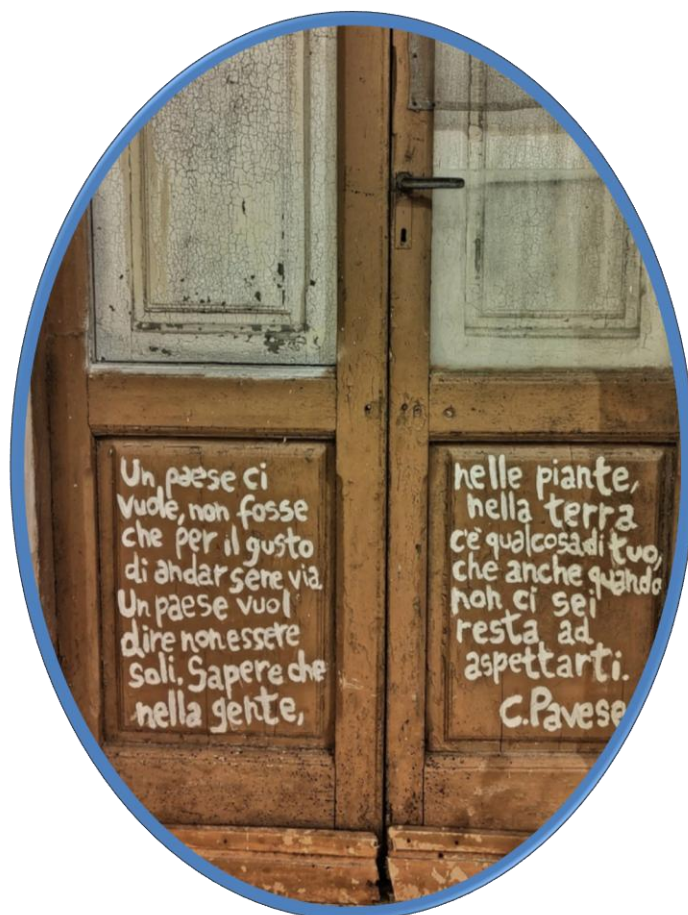 Un paese ci
vuole, non fosse
che per il gusto
di andarsene via
Un paese vuol
dire non essere
soli. Sapere che
nella gente,
nelle piante,
nella terra
c'è qualcosa di tuo,
che anche quando
non ci sei
resta ad
aspettarti.
C. Pavese